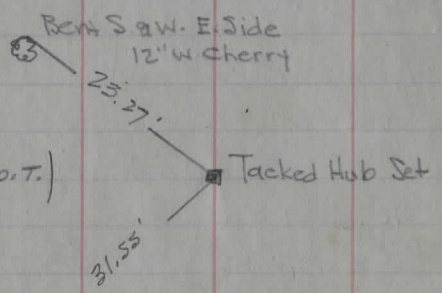 Bent S 9 W. E. Side
12" W Cherry
23.27'
O.T.)
Tacked Hub Set
31.55'